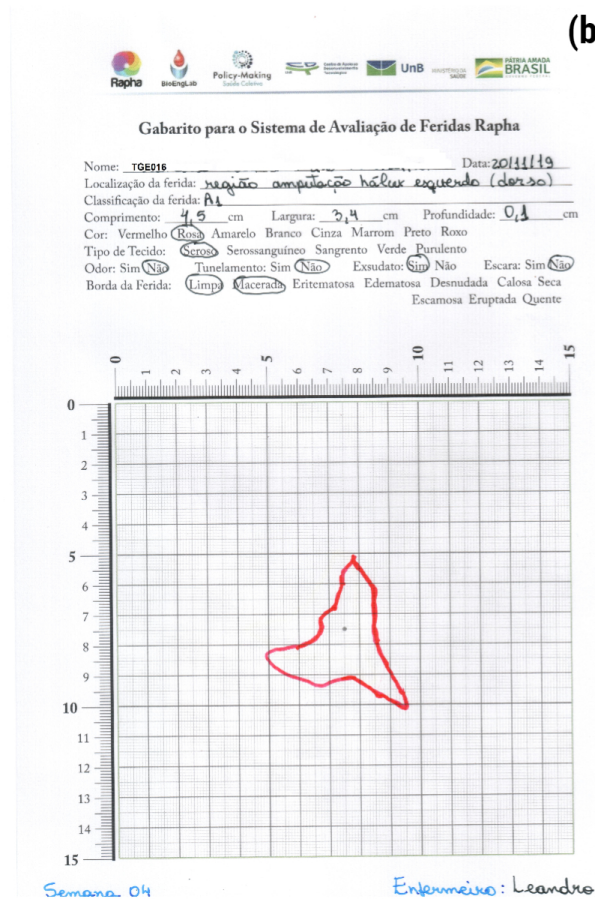 (b
Rapha
BioEngLab
Policy-Making
Saúde Coletiva
UnB
MINISTÉRIO DA
SAÚDE
PÁTRIA AMADA
BRASIL
Gabarito para o Sistema de Avaliação de Feridas Rapha
Nome: TGE016 Data: 20/11/19
Localização da ferida: região amputação hálux esquerdo (dorso)
Classificação da ferida: A1
Comprimento: 4,5 cm Largura: 3,4 cm Profundidade: 0,1 cm
Cor: Vermelho Rosa Amarelo Branco Cinza Marrom Preto Roxo
Tipo de Tecido: Seroso Serossanguíneo Sangrento Verde Purulento
Odor: Sim Não Tunelamento: Sim Não Exsudato: Sim Não Escara: Sim Não
Borda da Ferida: Limpa Macerada Eritematosa Edematosa Desnudada Calosa Seca
Escamosa Eruptada Quente
0 1 2 3 4 5 6 7 8 9 10 11 12 13 14 15
0
1
2
3
4
5
6
7
8
9
10
11
12
13
14
15
Semana 04 Enfermeiro: Leandro